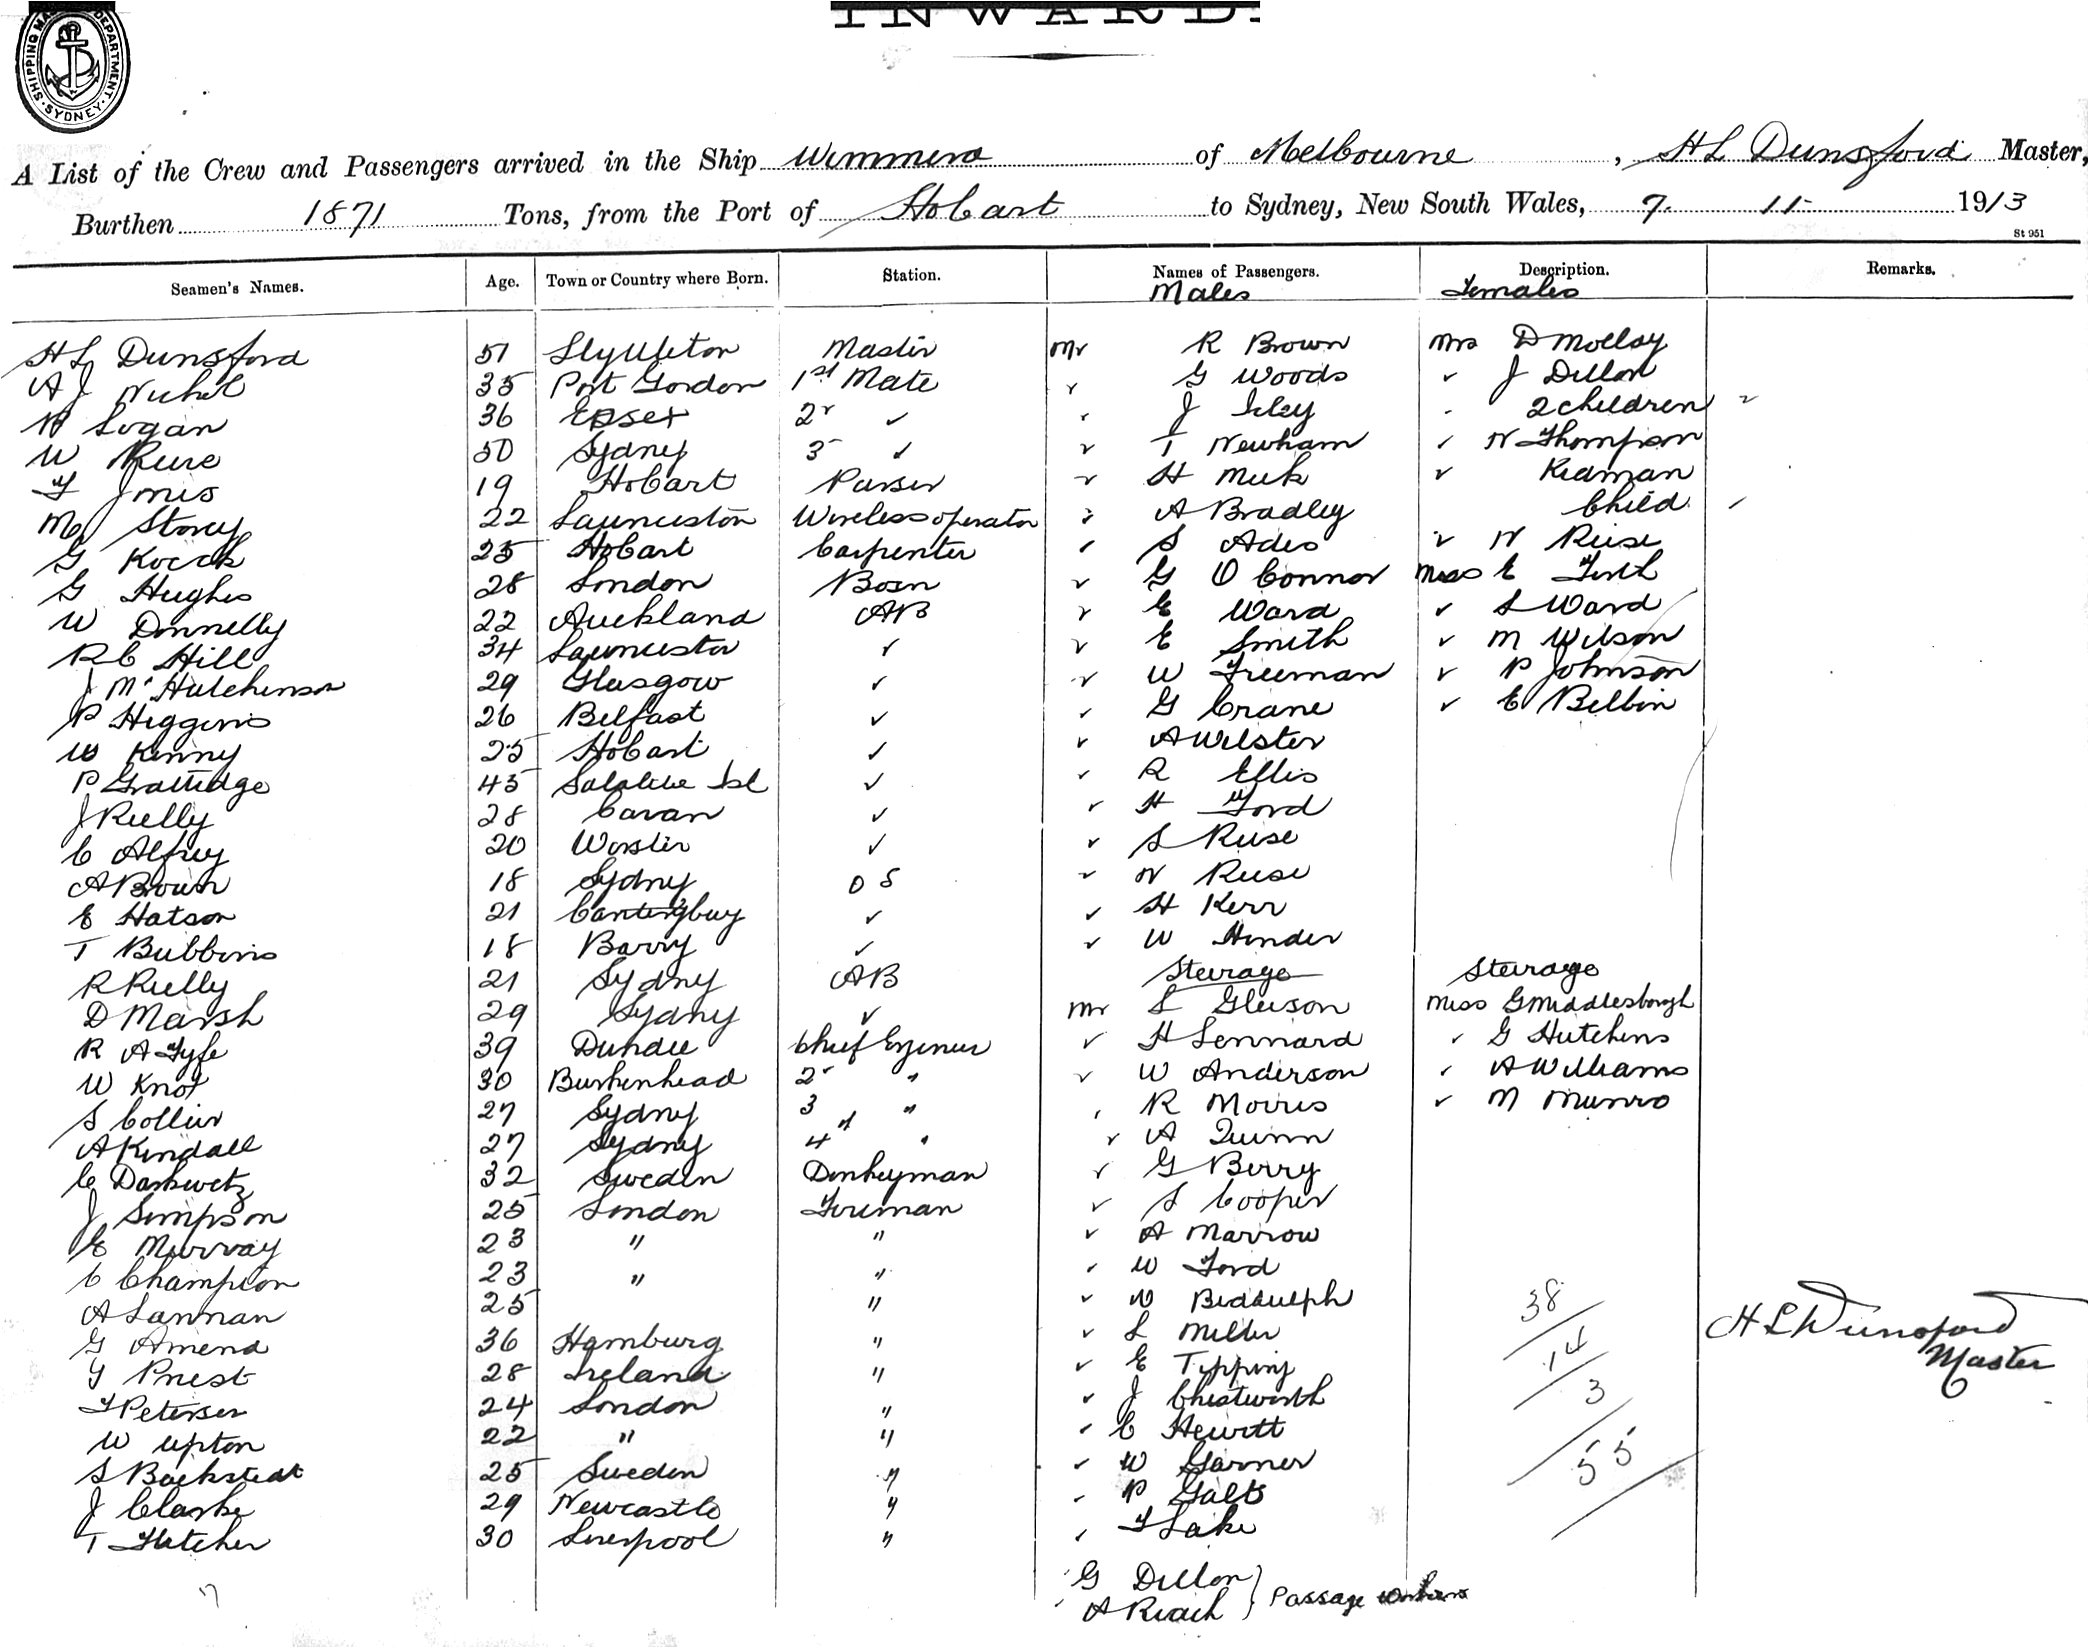 SHIPPING MASTER'S DEPARTMENT. SYDNEY.
INWARD.
A List of the Crew and Passengers arrived in the Ship Wimmera of Melbourne, H L Dunsford Master,
Burthen 1871 Tons, from the Port of Hobart to Sydney, New South Wales, 7. 11. 1913
St 951
Seamen's Names. Age. Town or Country where Born. Station. Names of Passengers. Description. Remarks.
Males Females
H L Dunsford 51 Lyttleton Master Mr R Brown Mrs D Molloy
A J Nichol 35 Port Gordon 1st Mate G Woods J Dillon
Logan 36 Essex 2 J 2 children
W 50 Sydney 3 T Newham N Thompson
F Jones 19 Hobart Purser H Meek Kidman
Storey 22 Launceston Wireless operator A Bradley Child
G 25 Hobart Carpenter S Ades N Ruse
G Hughes 28 London Bosn G O Connor Miss E Firth
W Donnelly 22 Auckland AB E Ward S Ward
R C Hill 34 Launceston E Smith M Wilson
J Mc Hutchinson 29 Glasgow W Freeman P Johnson
P Higgins 26 Belfast G Crane E Belbin
W Kenny 25 Hobart A Wilster
P Grattidge 45 Isl R Ellis
J Reilly 28 Cavan H Ford
C Alfrey 20 Worster S Ruse
A Brown 18 Sydney O S N Ruse
E Hatson 21 Canterbury H Kerr
T Bubbins 18 Barry W Hinder
R Reilly 21 Sydney AB Steerage Steerage
D Marsh 29 Sydney Mr L Gleeson Miss G Middlesborough
R A Fyfe 39 Dundee Chief Engineer H Lennard G Hutchins
W Knot 30 Burkenhead 2 " W Anderson A Williams
S Collier 27 Sydney 3 " R Morris M Munro
A Kendall 27 Sydney 4 " A Quinn
C Darkwetz 32 Sweden Donkeyman G Berry
J Simpson 25 London Fireman S Cooper
E Murray 23 " " A Marrow
C Champion 23 " " W Ford
A Lanman 25 " Biddulph 38
G Amend 36 Hamburg " L Miller H L Dunsford
Priest 28 Ireland " E Tipping 14 Master
F Petersen 24 London " J Chestworth 3
W Upton 22 " " C Hewitt
S Backstedt 25 Sweden " W Garner 55
J Clarke 29 Newcastle " P Galts
T Fletcher 30 Liverpool " F Lake
G Dillon
A Roach } Passage workers